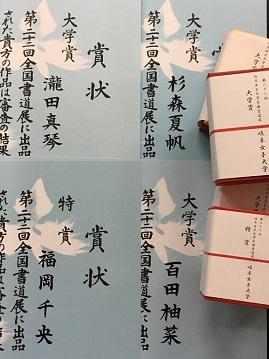 大学賞
賞状
瀧田真琴
第二十二回全国書道展に出品
された貴方の作品は審査の結果
大学賞
杉森夏帆
第二十二回全国書道展に出品
特賞
賞状
福岡千央
第二十二回全国書道展に出品
された貴方の作品は審査の結
大学賞
百田柚菜
第二十二回全国書道展に出品
大学賞
岐阜女子大学
特賞
岐阜女子大学